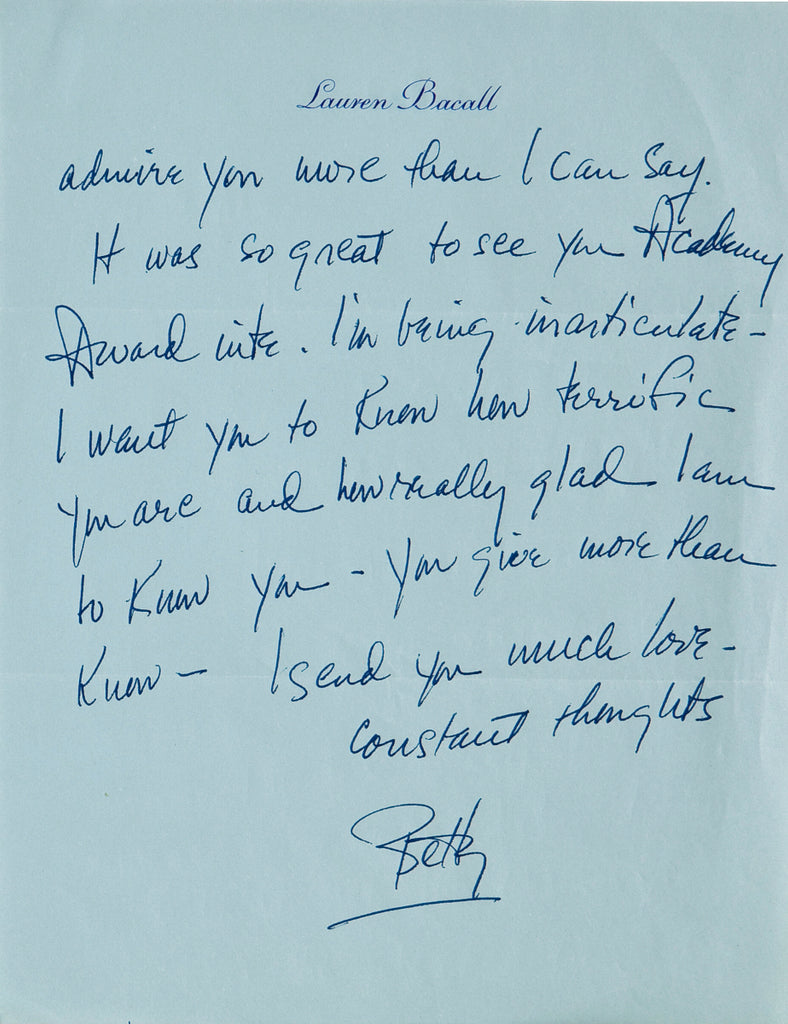 Lauren Bacall
admire you more than I can say.
It was so great to see you Academy
Award nite. I'm being inarticulate -
I want you to know how terrific
you are and how really glad I am
to know you - you give more than
know - I send you much love -
constant thoughts
Betty